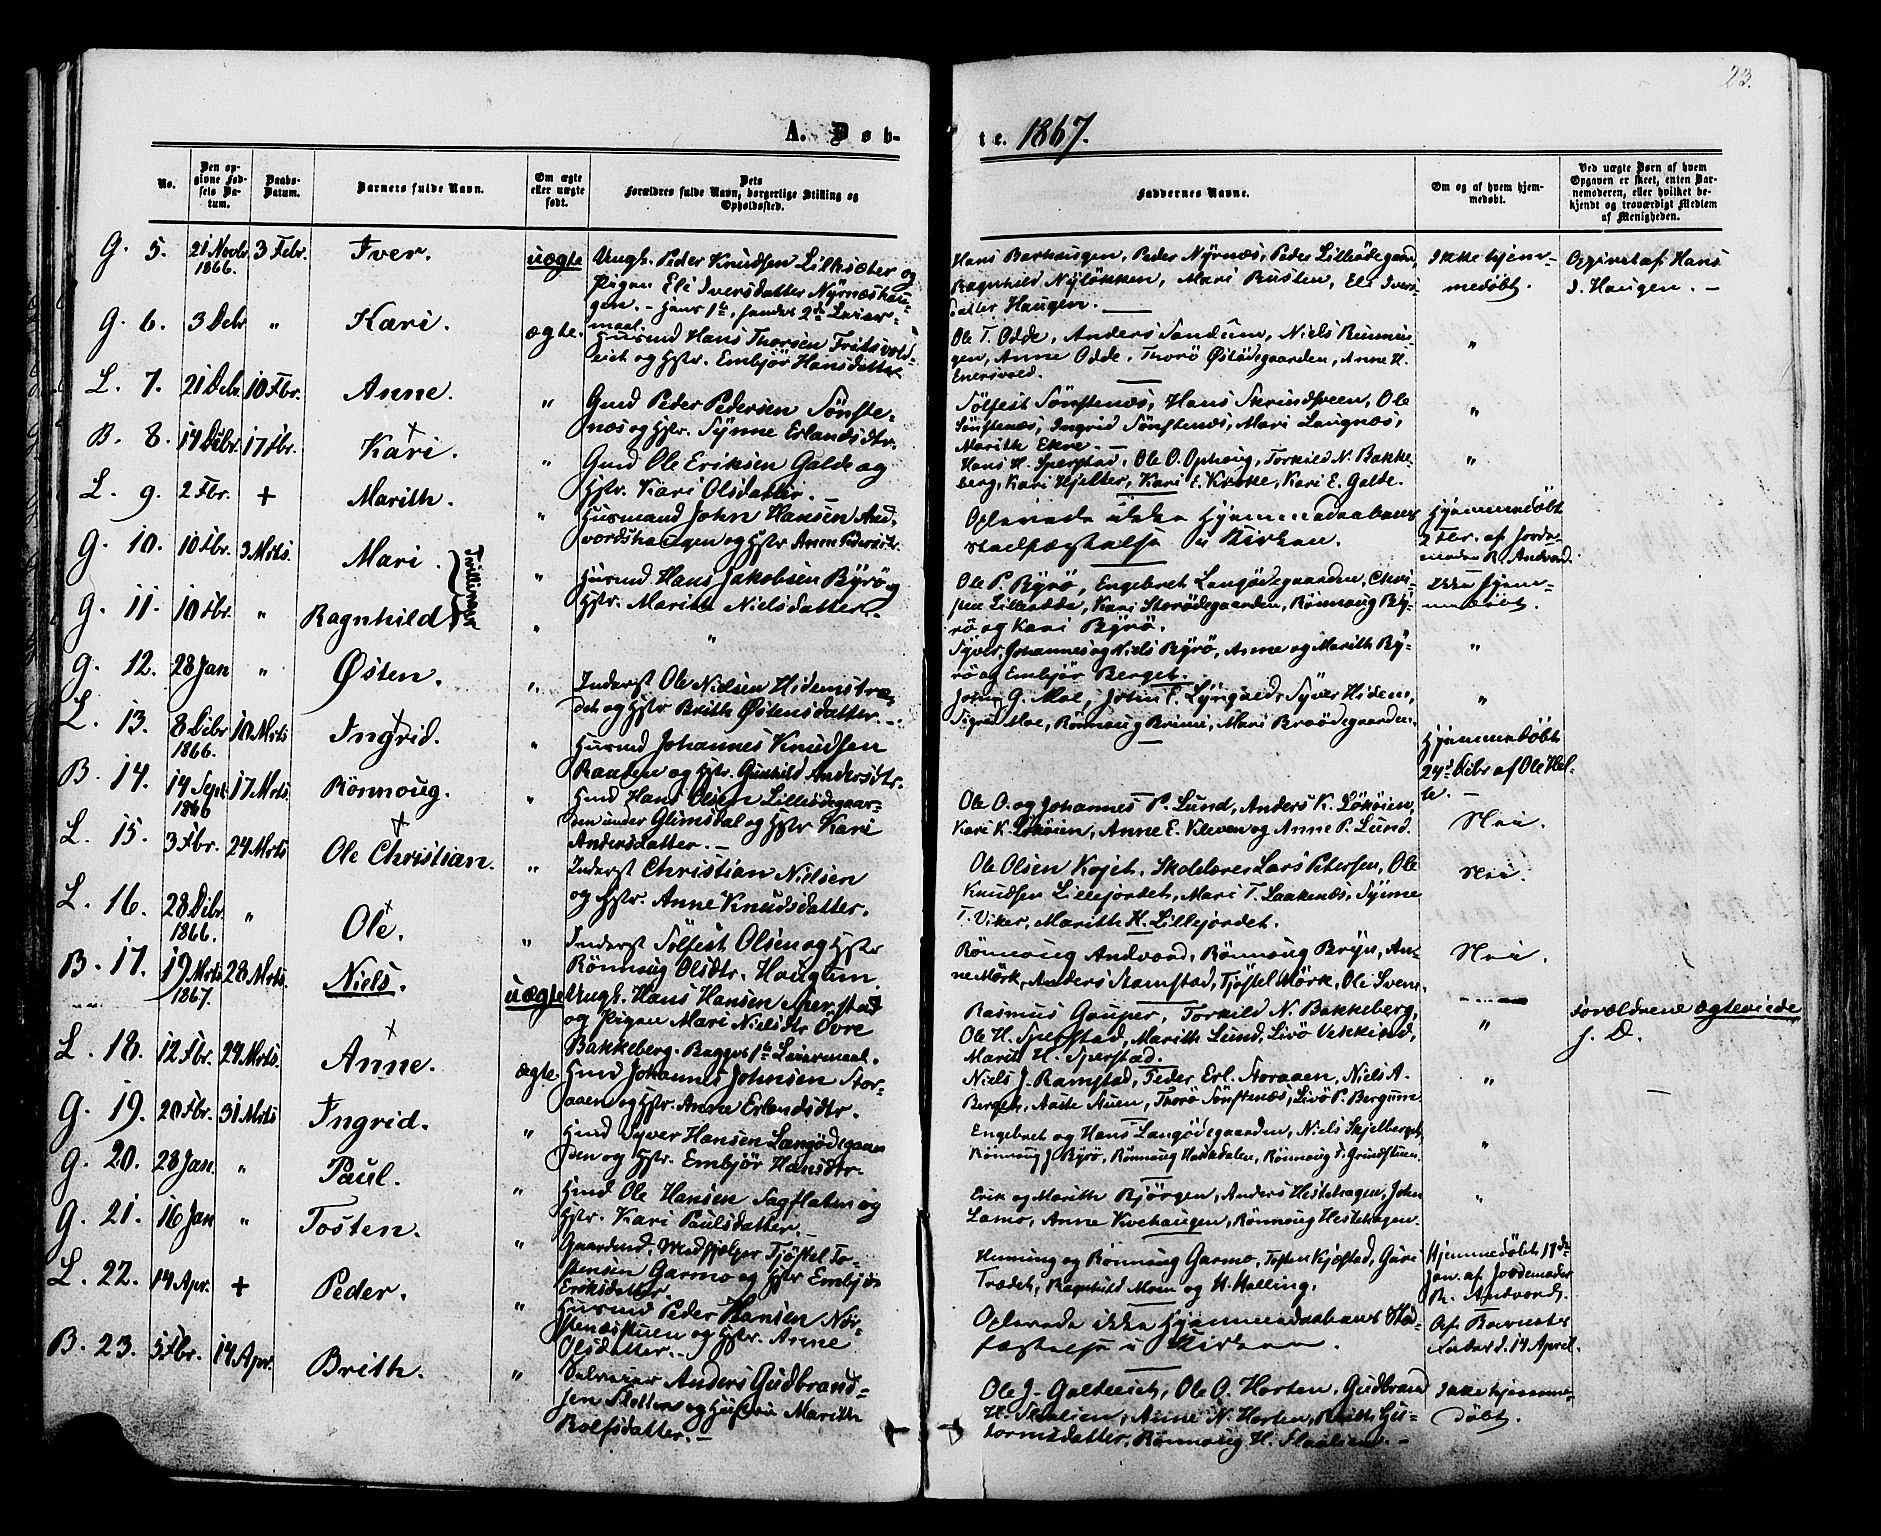 23.
A. Døb-
te. 1867.
No.
Den op-
givne Fød-
sels Da-
tum.
Daabs-
Datum.
Barnets fulde Navn.
Om ægte
eller uægte
født.
Dets
Forældres fulde Navn, borgerlige Stilling og
Opholdssted.
Faddernes Navne.
Om og af hvem hjem-
medøbt.
Ved uægte Børn af hvem
Opgaven er skeet, enten Bar-
nemoderen, eller hvilket be-
kjendt og troværdigt Medlem
af Menigheden.
G. 5. 21 Novbr 1866. 3 Febr. Iver. uægte
Ungk. Peder Knudsen Lilksæter og
Pigen Eli Iversdatter Nyrnæshau-
gen. - hans 1ste, hendes 2det Leier-
maal.
Hans Barhaugen, Peder Nyrnæs, Peder Lilleødegaard,
Ragnhild Nyløkken, Mari Rusten, Eli Ivers-
datter Haugen.
Ikke hjem-
medøbt.
Opgivet af Hans
Haugen. -
G. 6. 3 Debr " Kari. ægte.
Husmd Hans Thorsen Fritsvold-
eiet og Hstr. Embjør Hansdatter.
Ole T. Odde, Anders Sandum, Niels
gen, Anne Odde, Thorø Østødegaarden, Anne H.
Enersvold.
"
L. 7. 21 Debr. 10 Fbr. Anne. "
Gmd Peder Pedersen Sønste-
næs og Hstr. Synne Erlandsdtr.
Sølfest Sønstenæs, Hans Skrindsveen, Ole
Sønstenæs, Ingrid Sønstenæs, Mari Laugnæs,
Marith Ekre. -
"
B. 8. 14 Debr. 17 Fbr. Kari. "
Gmd Ole Eriksen Galde og
Hstr. Kari Olsdatter. -
Hans H. Sperstad, Ole O. Ophoug, Torkild N. Bakke-
berg, Kari Hjelter, Kari E. Kvæke, Kari E. Galde.
"
L. 9. 2 Fbr. + Marith. "
Husmand John Hansen And-
vordshaugen og Hstr Anne Pedersdtr.
Oplevede ikke Hjemmedaabens
Stadfæstelse i Kirken.
Hjemmedøbt
2 Febr. af Jorde-
moder R. Andvord.
G. 10. 10 Fbr. 3 Mrts. Mari. Tvillinger "
Husmd Hans Jakobsen Byrø og
Hstr. Marith Nielsdatter.
Ole P. Byrø, Engebret Langødegaarden, Chri-
sten Lilleodde, Kari Storødegaarden, Rønnoug By-
rø og Kari Byrø.
Ikke hjem-
medøbt.
G. 11. 10 Fbr. " Ragnhild " "
Syver, Johannes og Niels Byrø, Anne og Marith By-
rø og Embjør Berget.
"
G. 12. 28 Jan " Østen. "
Inderst Ole Nielsen Hidemstræ-
det og Hstr Brith Østensdatter. -
John G. Moe, John F. Lyngved, Syver Hidem,
Sigrid Moe, Rønnoug Brimi, Mari Braødegaarden.
"
L. 13. 8 Debr 1866. 10 Mrts Ingrid. "
Husmd Johannes Knudsen
Raaden og Hstr. Gunhild Andersdtr.
Hjemmedøbt
24de Debr af Ole Hol-
te. -
B. 14. 14 Sept 1866 17 Mrts. Rønnoug. "
Hmd Hans Olsen Lilleødegaar-
den under Glimsdal og Hstr Kari
Andersdatter. -
Ole O. og Johannes P. Lund, Anders K. Løkøien,
Kari K. Løkøien, Anne E. Kleven og Anne P. Lund.
Nei.
L. 15. 3 Fbr. 24 Mrts Ole Christian. "
Inderst Christian Nielsen
og Hstr. Anne Knudsdatter.
Ole Olsen Kojet, Skolelærer Lars Petersen, Ole
Knudsen Lillejordet, Mari T. Laakenæs, Synne
T. Viker, Marith H. Lillejordet.
Nei.
L. 16. 28 Debr 1866. " Ole. "
Inderst Sølfest Olsen og Hstr
Rønnoug Olsdtr. Haugum.
Rønnoug Andvord, Rønnoug Bryn, An-
ne Mørk, Anders Ramstad, Tjøstel Mørk, Ole Svens
Nei.
B. 17. 19 Mrts 1867. 28 Mrts. Niels. uægte
Ungk. Hans Hansen Sperstad
og Pigen Mari Nielsdtr Øvre
Bakkeberg. Begges 1ste Leiermaal.
Rasmus Gauper, Torkild N. Bakkeberg,
Ole H. Sperstad, Marith Lund, Livø Vekkestad,
Marit H. Sperstad.
"
Forældrene ægteviede
s. D.
L. 18. 12 Fbr. 24 Mrts. Anne. ægte.
Hmd Johannes Johnsen Stor-
aaen og Hstr. Anne Erlandsdtr.
Niels J. Ramstad, Peder Erl. Storaaen, Niels A.
Berget, Aaste Nuen, Thorø Sønstenæs, Livø P. Bergum
"
G. 19. 20 Fbr. 31 Mrts Ingrid. "
Hmd Syver Hansen Langødegaar-
den og Hstr. Embjør Hansdtr.
Engebret og Hans Langødegaarden, Niels Skjelberget,
Rønnoug J. Byrø, Rønnoug Haadalen, Rønnoug S. Grindstuen.
"
G. 20. 28 Jan. " Paul. "
Hmd Ole Hansen Sagflaten og
Hstr. Kari Paulsdatter. -
Erik og Marith Bjørgen, Anders Hestehagen, John
Lamo, Anne Kvehaugen, Rønnoug Hestehagen.
"
G. 21. 16 Jan " Tosten. "
Gaardmd. Medhjælper Tjøstel To-
stensen Garmo og Hstr Embjør
Eriksdatter.
Henning og Rønnoug Garmo, Tosten Kjæstad, Guri
Trædet, Ragnhild Moen og H. Halling.
Hjemmedøbt 17de
Jan. af Jordemoder
R. Andvord.
L. 22. 14 Apr. + Peder. "
Husmd Peder Hansen Nor-
stenæsstuen og Hstr. Anne
Olsdatter. -
Oplevede ikke Hjemmedaabens Stad-
fæstelse i Kirken.
Af Barnets
Fader d. 14 April.
B. 23. 5 Fbr. 14 Apr. Brith. "
Selveier Anders Gudbrand-
sen Sletten og Hustru Marith
Rolfsdatter. -
Ole J. Galdeeiet, Ole O. Horten, Gudbrand
H. Flaalien, Anne N. Horten, Brith Gu-
tormsdatter, Rønnoug H. Flaalien. -
Ikke hjemme-
døbt.